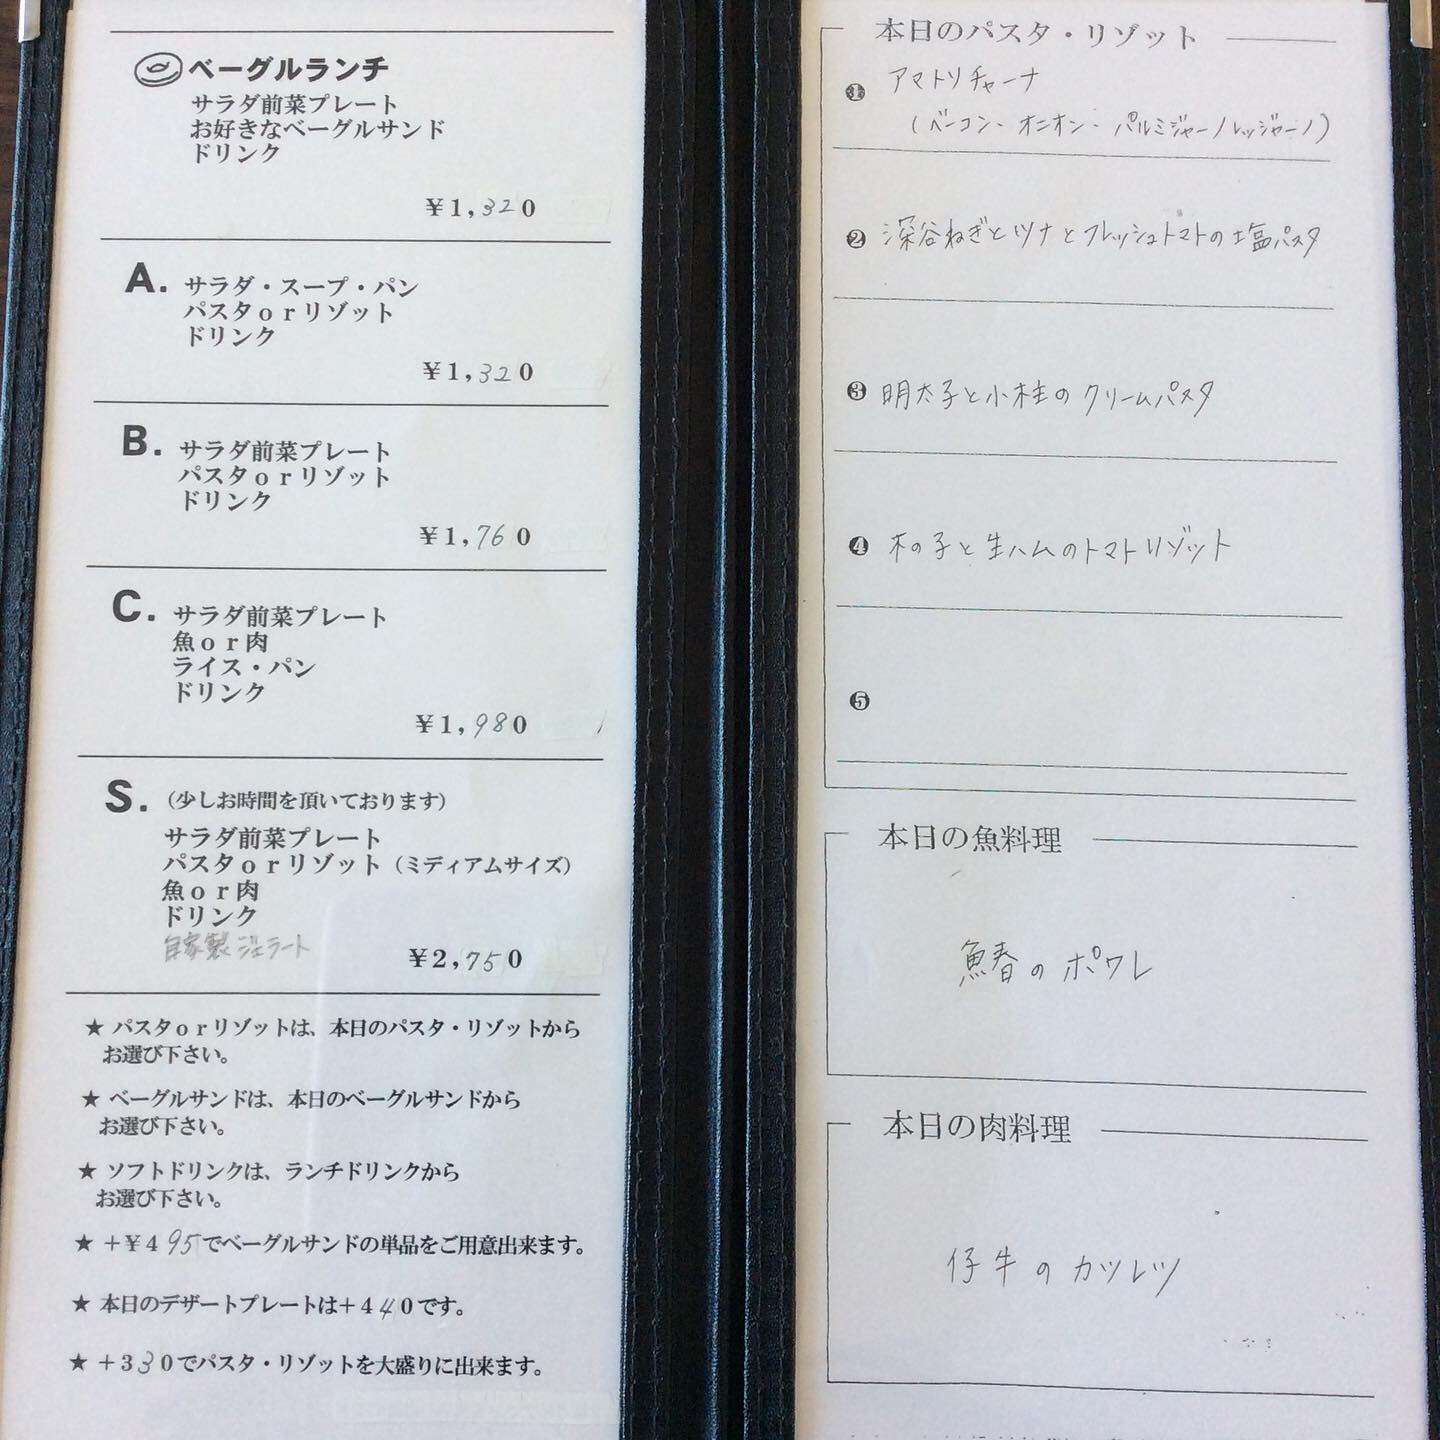 ベーグルランチ
サラダ前菜プレート
お好きなベーグルサンド
ドリンク
¥1,320
A. サラダ・スープ・パン
パスタorリゾット
ドリンク
¥1,320
B. サラダ前菜プレート
パスタorリゾット
ドリンク
¥1,760
C. サラダ前菜プレート
魚or肉
ライス・パン
ドリンク
¥1,980
S. (少しお時間を頂いております)
サラダ前菜プレート
パスタorリゾット(ミディアムサイズ)
魚or肉
ドリンク
自家製ジェラート
¥2,750
★ パスタorリゾットは、本日のパスタ・リゾットから
お選び下さい。
★ ベーグルサンドは、本日のベーグルサンドから
お選び下さい。
★ ソフトドリンクは、ランチドリンクから
お選び下さい。
★ +¥495でベーグルサンドの単品をご用意出来ます。
★ 本日のデザートプレートは+440です。
★ +330でパスタ・リゾットを大盛りに出来ます。
本日のパスタ・リゾット
❶ アマトリチャーナ
(ベーコン・オニオン・パルミジャーノレッジャーノ)
❷ 深谷ねぎとツナとフレッシュトマトの塩パスタ
❸ 明太子と小柱のクリームパスタ
❹ 木の子と生ハムのトマトリゾット
❺
本日の魚料理
鰆のポワレ
本日の肉料理
仔牛のカツレツ